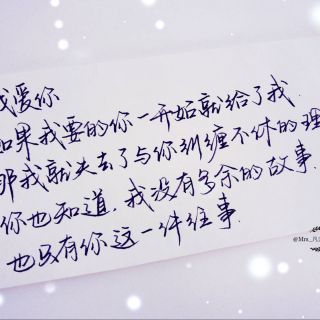 我爱你
如果我要的你一开始就给了我.
那我就失去了与你纠缠不休的理
你也知道,我没有多余的故事.
也只有你这一件往事.
@Mrs_